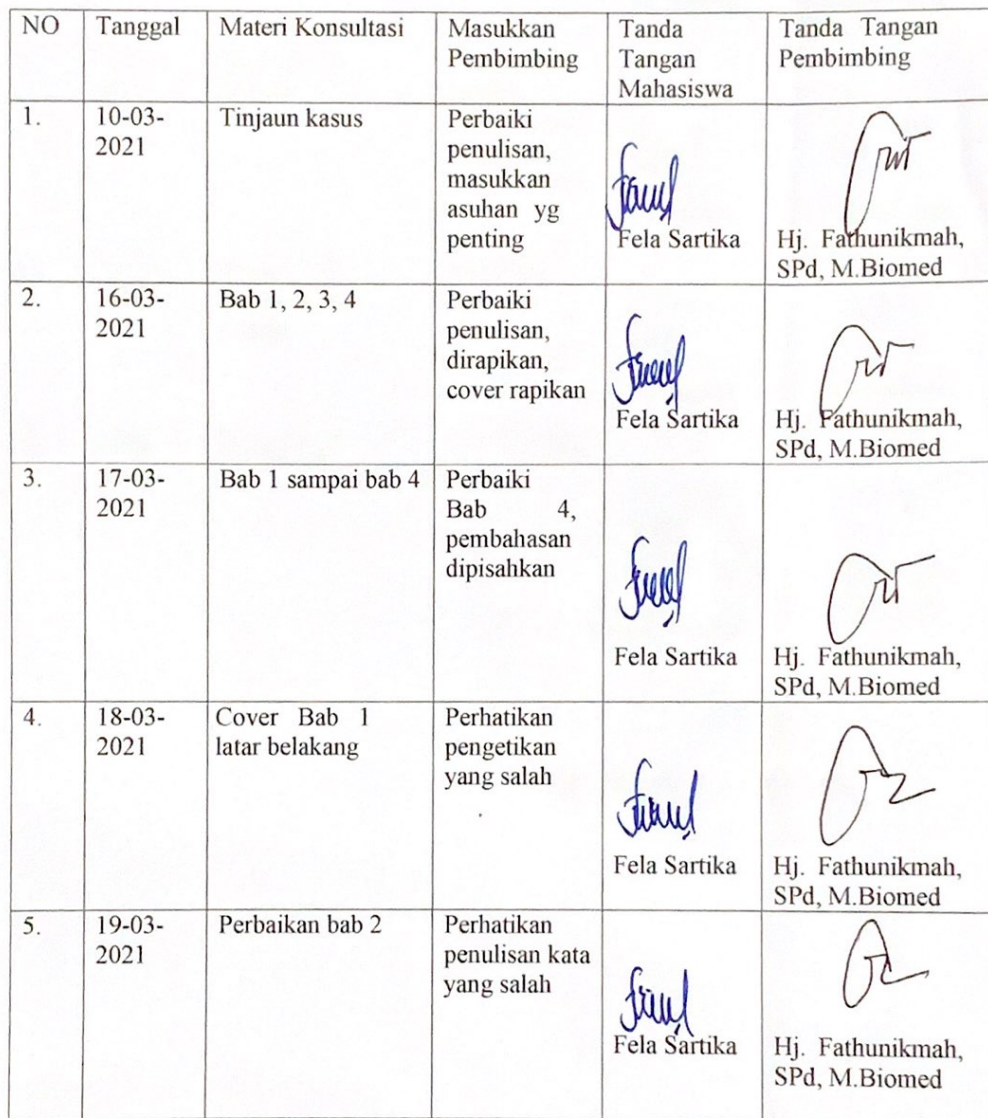 NO Tanggal Materi Konsultasi Masukkan Pembimbing Tanda Tangan Mahasiswa Tanda Tangan Pembimbing
1. 10-03-2021 Tinjaun kasus Perbaiki penulisan, masukkan asuhan yg penting Fela Sartika Hj. Fathunikmah, SPd, M.Biomed
2. 16-03-2021 Bab 1, 2, 3, 4 Perbaiki penulisan, dirapikan, cover rapikan Fela Sartika Hj. Fathunikmah, SPd, M.Biomed
3. 17-03-2021 Bab 1 sampai bab 4 Perbaiki Bab 4, pembahasan dipisahkan Fela Sartika Hj. Fathunikmah, SPd, M.Biomed
4. 18-03-2021 Cover Bab 1 latar belakang Perhatikan pengetikan yang salah Fela Sartika Hj. Fathunikmah, SPd, M.Biomed
5. 19-03-2021 Perbaikan bab 2 Perhatikan penulisan kata yang salah Fela Sartika Hj. Fathunikmah, SPd, M.Biomed